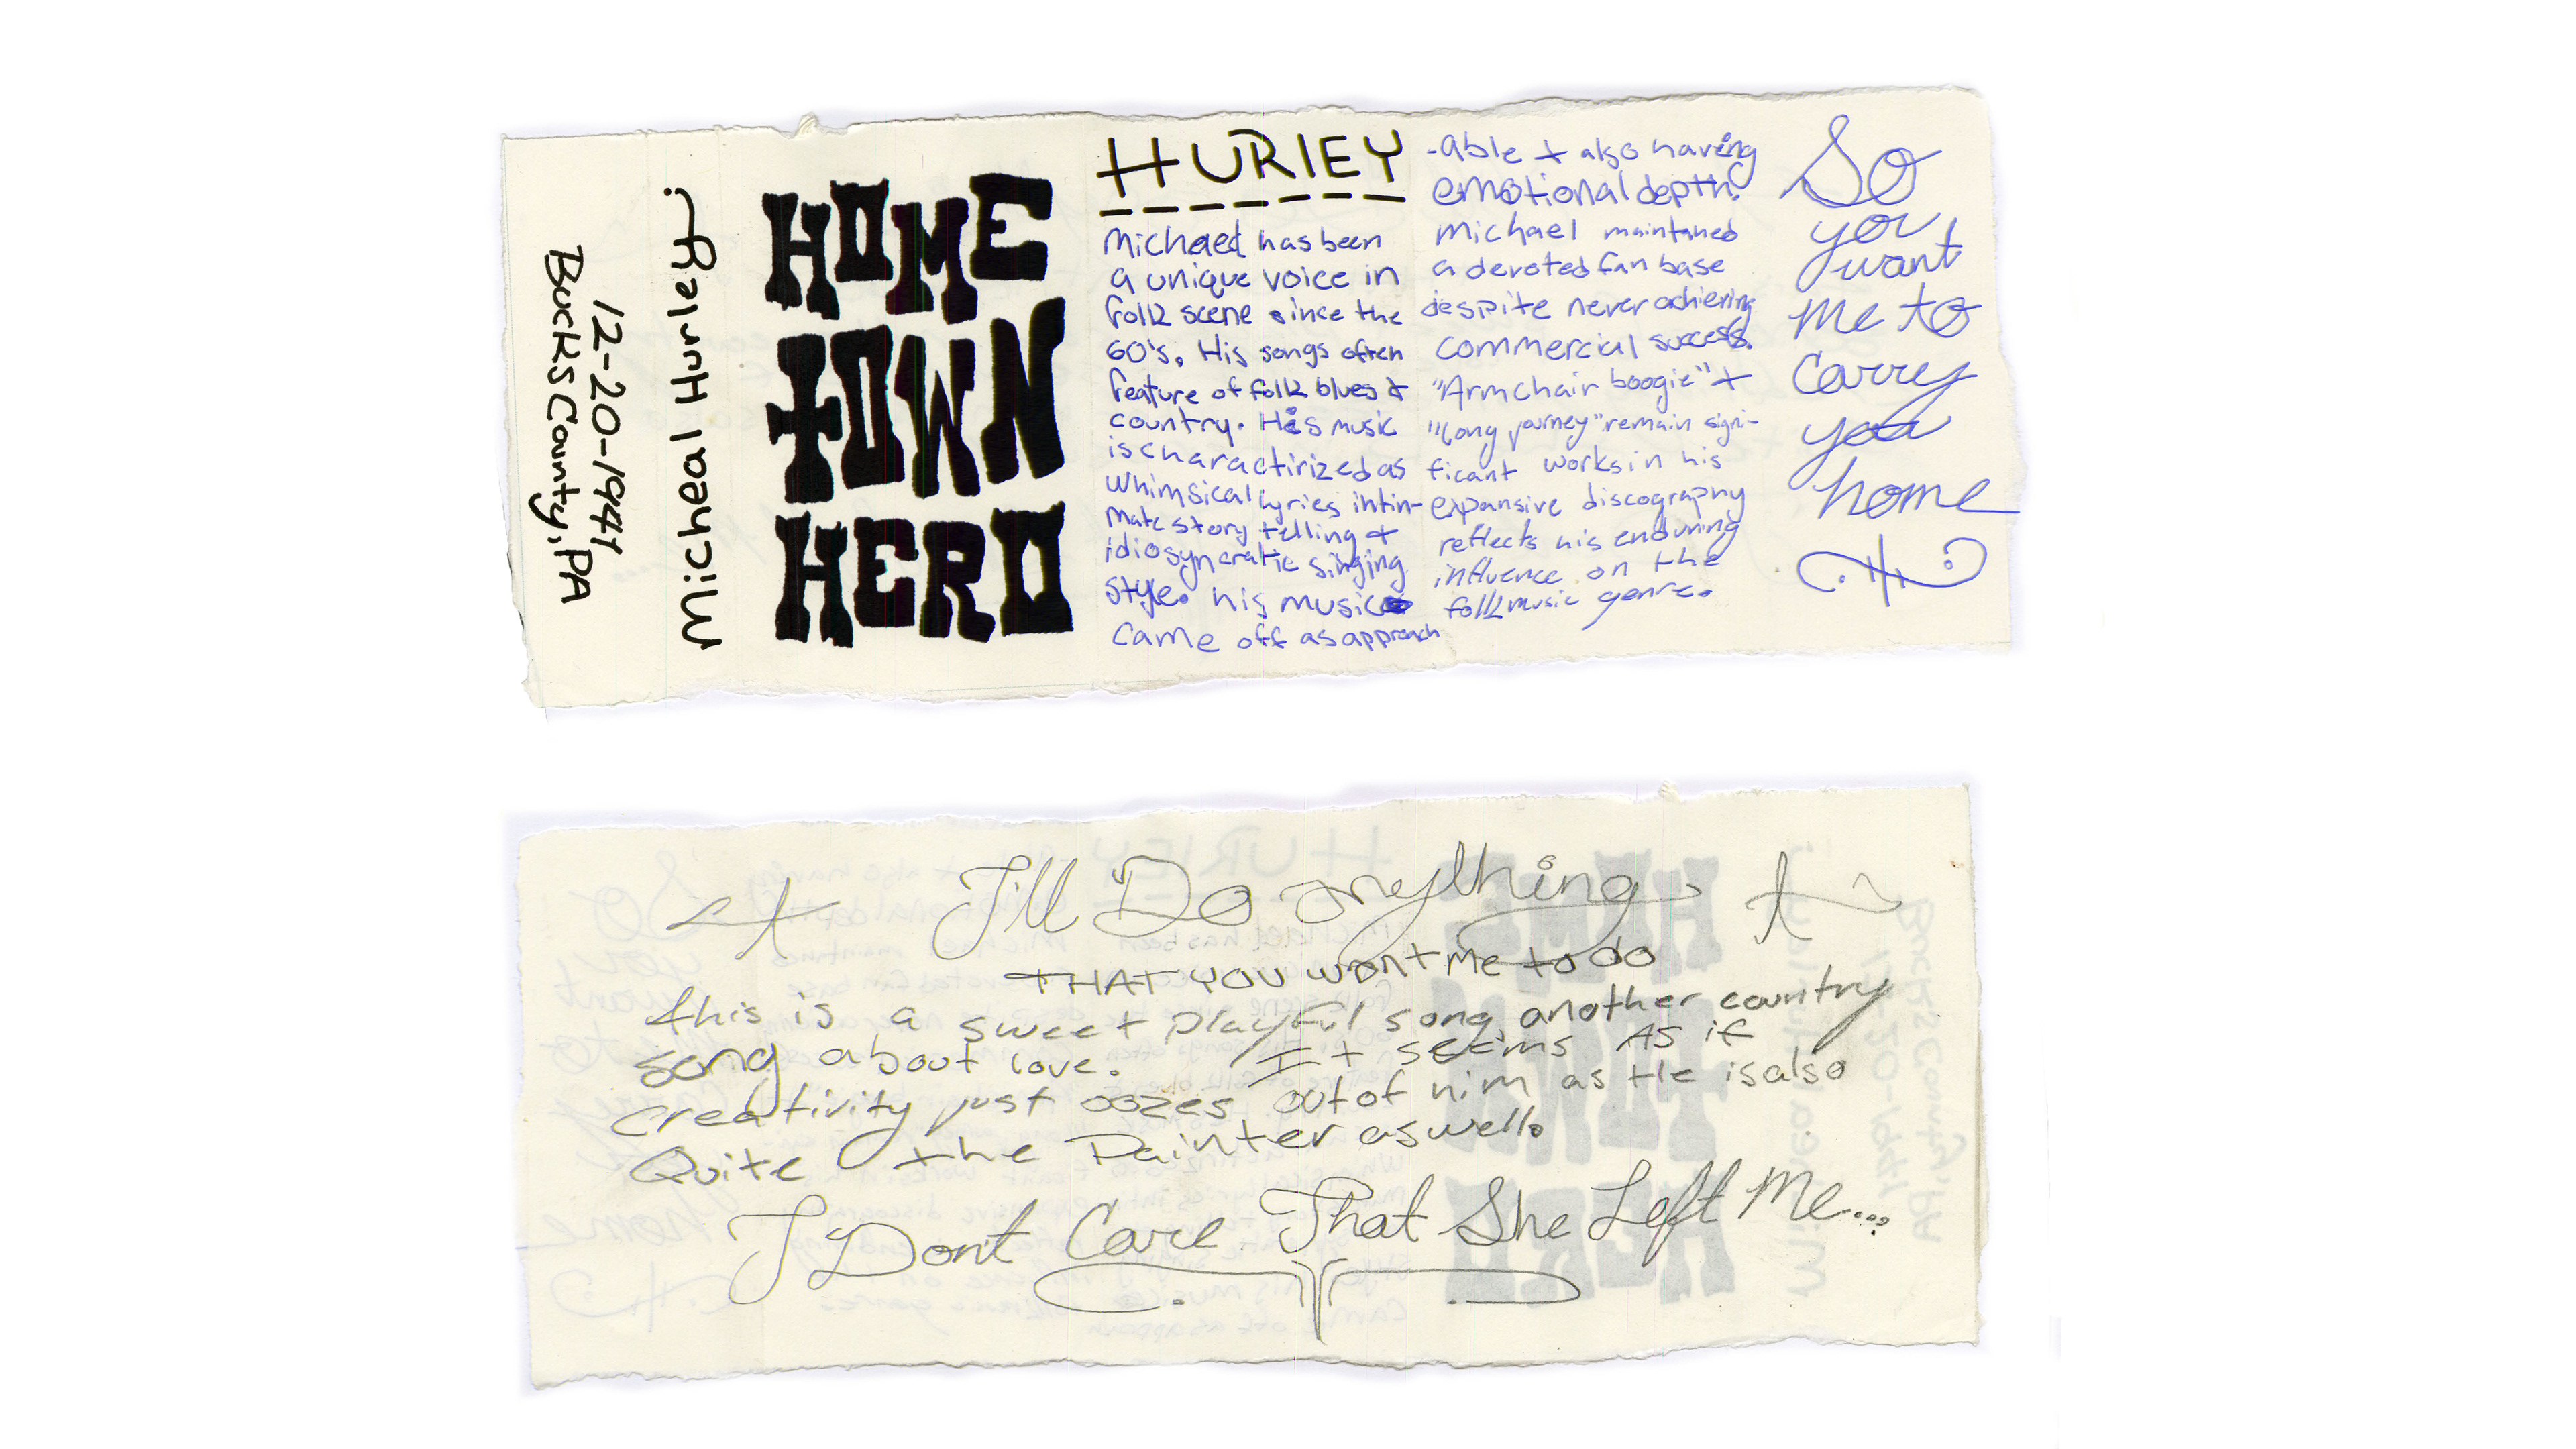 12-20-1941
Bucks County, PA
Micheal Hurley
HOME
TOWN
HERO
HURlEY
Michael has been
a unique voice in
folk scene since the
60's. His songs often
feature of folk blues &
country. His music
is charactirized as
whimsical lyrics intin-
mate story telling +
idiosyncratic singing
style. his music
came off as approach
-able + also having
emotional depth.
michael maintaned
a devoted fan base
despite never achieving
commercial success.
"Armchair boogie" +
"long journey" remain signi-
ficant works in his
expansive discography
reflects his enduring
influence on the
folk music genre.
So
you
want
me to
Carry
you
home
I'll Do anything
THAT YOU want Me to do
this is a sweet playful song, another country
song about love. It seems As if
creativity just oozes out of him as He is also
Quite the Painter as well.
I Don't Care That She Left Me...